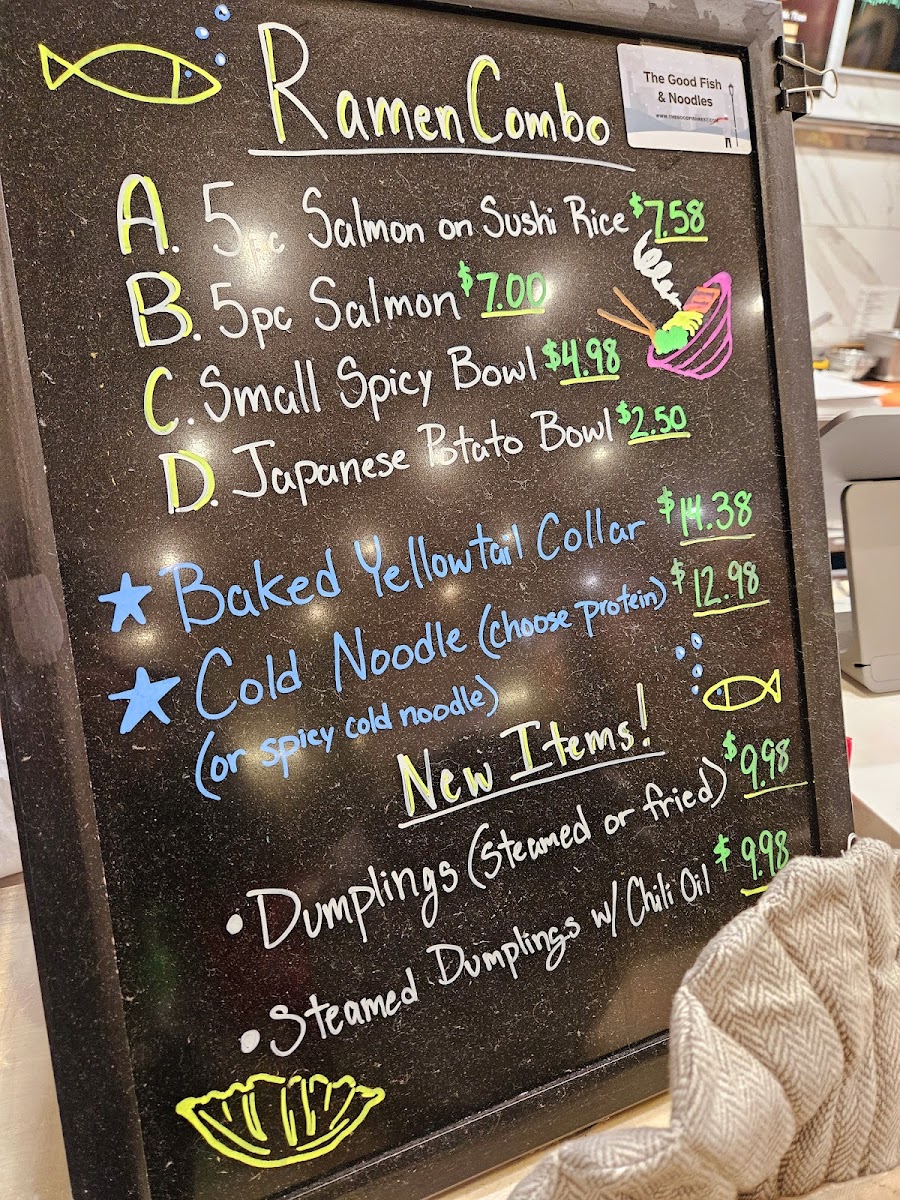 Ramen Combo
The Good Fish
& Noodles
A. 5pc Salmon on Sushi Rice $7.58
B. 5pc Salmon $7.00
C. Small Spicy Bowl $4.98
D. Japanese Potato Bowl $2.50
★ Baked Yellowtail Collar $14.38
★ Cold Noodle (choose protein) $12.98
(or spicy cold noodle)
New Items!
• Dumplings (steamed or fried) $9.98
• Steamed Dumplings w/ Chili Oil $9.98